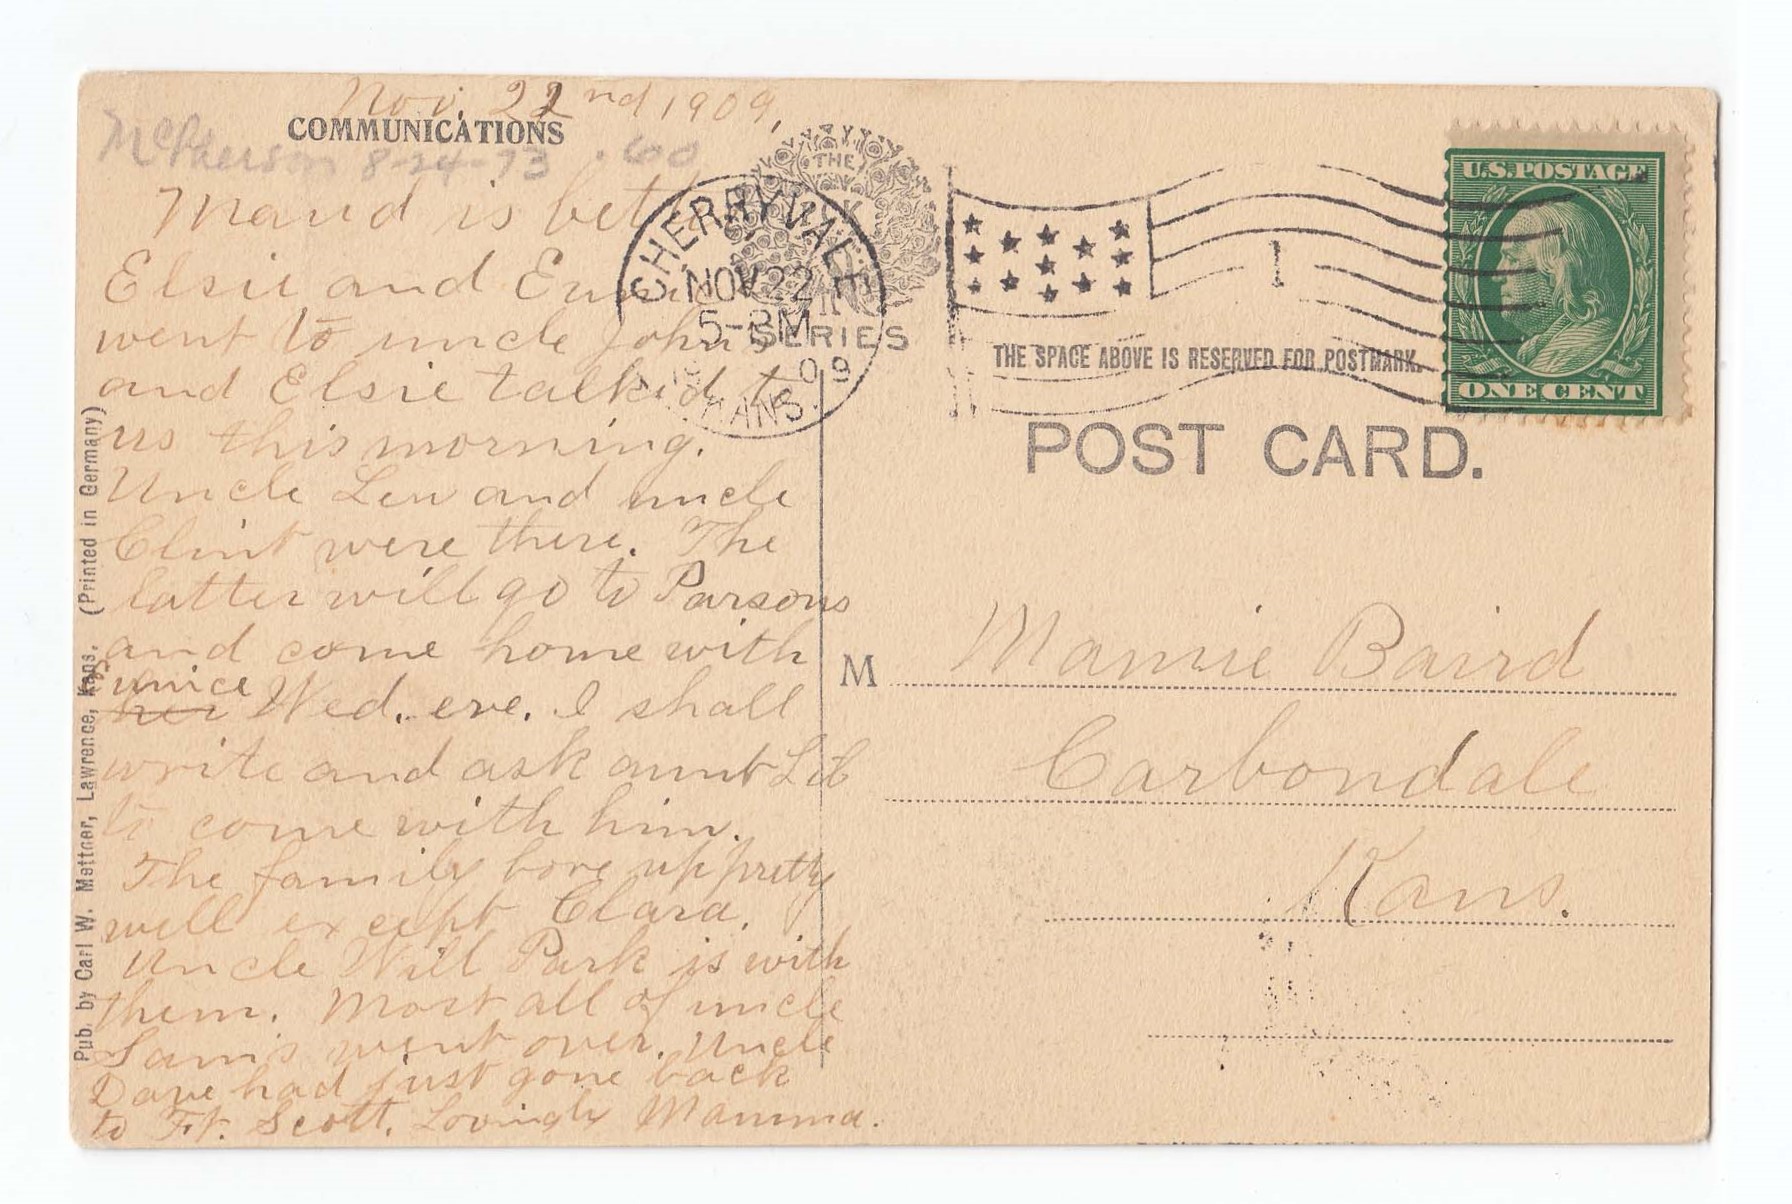 Nov. 22nd 1909,
COMMUNICATIONS
McPherson 8-24-73 .60
Maud is bett
Elsie and Eunice
went to uncle John's
and Elsie talked to
us this morning.
Uncle Lew and uncle
Clint were there. The
latter will go to Parsons
and come home with
Eunice
her Wed. eve. I shall
write and ask aunt Lib
to come with him.
The family bore up pretty
well except Clara.
Uncle Will Park is with
them. Most all of uncle
Sam's went over. Uncle
Dave had just gone back
to Ft. Scott. Lovingly Mamma.
Pub. by Carl W. Mettner, Lawrence, Kans. (Printed in Germany)
THE
SERIES
CHERRYVALE
NOV 22
5-PM
09
KANS.
1
U.S. POSTAGE
ONE CENT
THE SPACE ABOVE IS RESERVED FOR POSTMARK.
POST CARD.
M Mamie Baird
Carbondale
Kans.